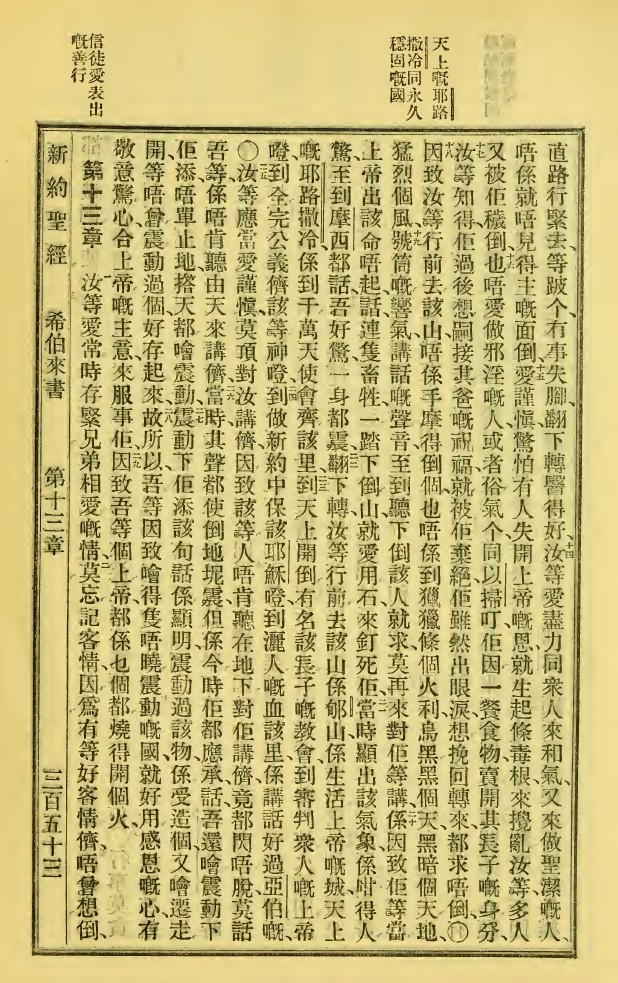 天上嘅耶路
撒冷同永久
穩固嘅國
信徒愛表出
嘅善行
直路行緊去、等跛个有事失脚、翻下轉醫得好、十四汝等愛盡力同衆人來和氣、又來做聖潔嘅人、
唔係就唔見得主嘅面倒、十五愛謹愼、驚怕有人失開上帝嘅恩、就生起條毒根來攪亂汝等多人
又被佢穢倒也、十六唔愛做邪淫嘅人、或者俗氣个、同以掃叮、佢因一餐食物、賣開其長子嘅身分、
十七汝等知得佢過後想嗣接其爸嘅祝福、就被佢棄絕、佢雖然出眼淚、想挽回轉來、都求唔倒、〇
十八因致汝等行前去該山、唔係手摩得倒個、也唔係到獵獵條個火、利烏黑黑個天、黑暗個天地、
猛烈個風、十九號筒嘅響氣、講話嘅聲音、至到聽下倒該人、就求莫再來對佢等講、二十係因致佢等當
上帝出該命唔起、話、連隻畜牲一踏下倒山、就愛用石來釘死佢、二一當時顯出該氣象、係咁得人
驚、至到摩西都話、吾好驚、一身都震、二二翻下轉、汝等行前去該山、係郇山、係生活上帝嘅城、天上
嘅耶路撒冷、係到千萬天使會齊該里、二三到天上開倒有名該長子嘅教會、到審判衆人嘅上帝
噔、到全完公義儕該等神噔、二四到做新約中保該耶穌噔、到灑人嘅血該里、係講話好過亞伯嘅、
〇二五汝等應當愛謹愼、莫項對汝講儕、因致該等人唔肯聽在地下對佢講儕、竟都閃唔脫、莫話
吾等係唔肯聽由天來講儕、二六當時其聲都使倒地坭震、但係今時佢都應承話、吾還噲震動下
佢添、唔單止地、撘天都噲震動、二七震動下佢添該句話、係顯明震動過該物、係受造個、又噲遷走
開、等唔曾震動過個、好存起來、二八故所以吾等因致噲得隻唔曉震動嘅國、就好用感恩嘅心、有
敬意驚心、合上帝嘅主意來服事佢、二九因致吾等個上帝、都係乜個都燒得開個火、
第十三章 一汝等愛常時存緊兄弟相愛嘅情、二莫忘記客情、因爲有等好客情儕、唔曾想倒、
新約聖經 希伯來書 第十三章 三百五十三